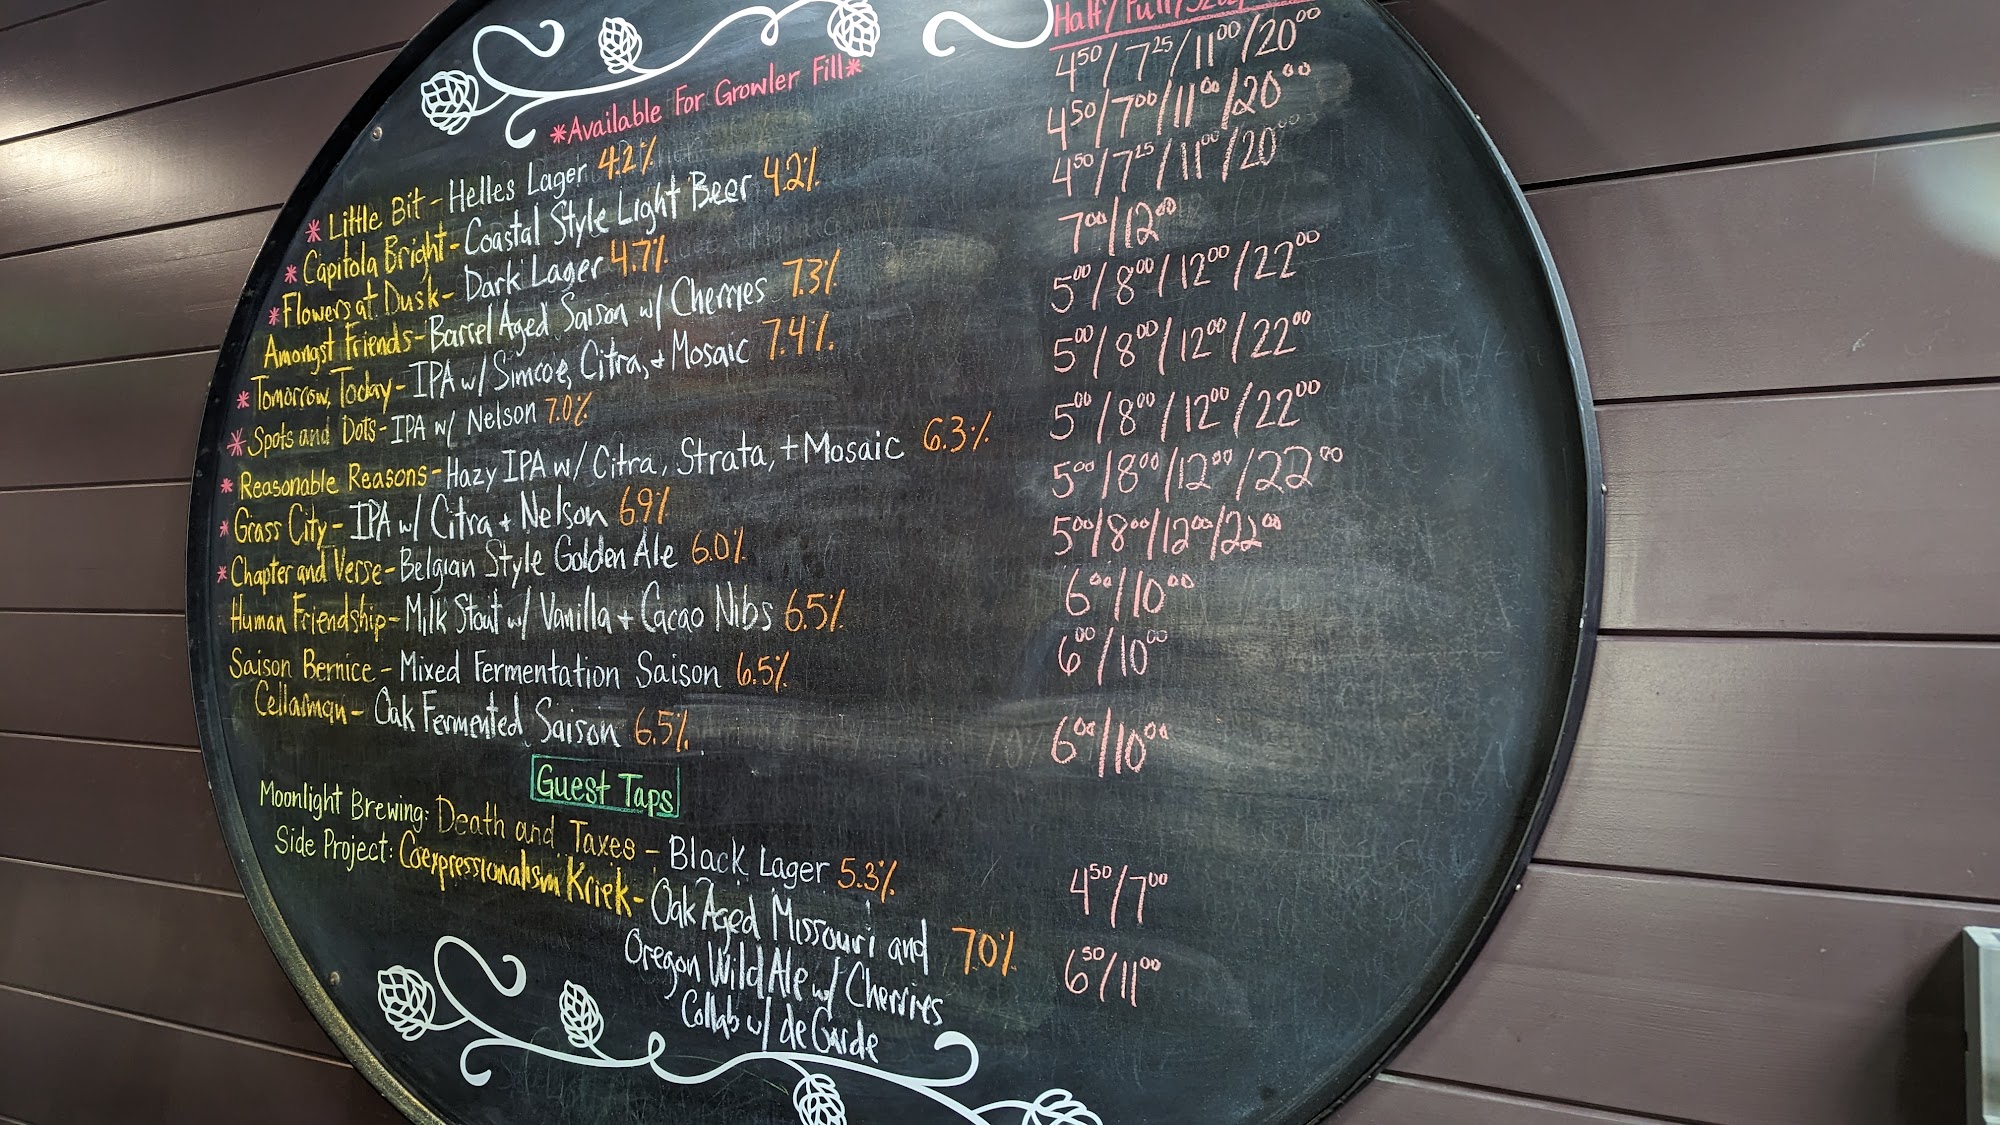 Half/Full/32oz
*Available For Growler Fill*
*Little Bit - Helles Lager 4.2% 4⁵⁰/7²⁵/11⁰⁰/20⁰⁰
*Capitola Bright - Coastal Style Light Beer 4.2% 4⁵⁰/7⁰⁰/11⁰⁰/20⁰⁰
*Flowers at Dusk - Dark Lager 4.7% 4⁵⁰/7²⁵/11⁰⁰/20⁰⁰
Amongst Friends - Barrel Aged Saison w/ Cherries 7.3% 7⁰⁰/12⁰⁰
*Tomorrow, Today - IPA w/ Simcoe, Citra, + Mosaic 7.4% 5⁰⁰/8⁰⁰/12⁰⁰/22⁰⁰
*Spots and Dots - IPA w/ Nelson 7.0% 5⁰⁰/8⁰⁰/12⁰⁰/22⁰⁰
*Reasonable Reasons - Hazy IPA w/ Citra, Strata, + Mosaic 6.3% 5⁰⁰/8⁰⁰/12⁰⁰/22⁰⁰
*Grass City - IPA w/ Citra + Nelson 6.9% 5⁰⁰/8⁰⁰/12⁰⁰/22⁰⁰
*Chapter and Verse - Belgian Style Golden Ale 6.0% 5⁰⁰/8⁰⁰/12⁰⁰/22⁰⁰
Human Friendship - Milk Stout w/ Vanilla + Cacao Nibs 6.5% 6⁰⁰/10⁰⁰
Saison Bernice - Mixed Fermentation Saison 6.5% 6⁰⁰/10⁰⁰
Cellarman - Oak Fermented Saison 6.5% 6⁰⁰/10⁰⁰
Guest Taps
Moonlight Brewing: Death and Taxes - Black Lager 5.3% 4⁵⁰/7⁰⁰
Side Project: Coexpressionalism Kriek - Oak Aged Missouri and 7.0% 6⁵⁰/11⁰⁰
Oregon Wild Ale w/ Cherries
Collab w/ de Garde